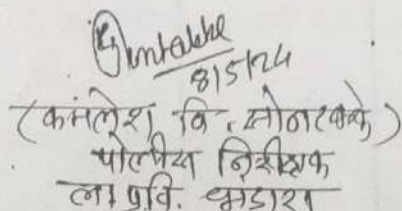 8/5/24
(कमलेश वि. सोनटक्के)
पोलीस निरीक्षक
ला.प्र.वि. भंडारा